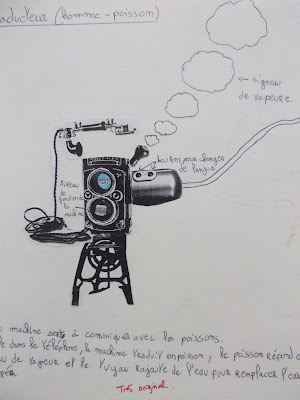 aducteur (homme-poisson)
← signeau
de vapeure
boutons pour changer
de langue
niveau
de
la
machine
machine à comuniquer avec les poissons.
le dans le téléphone, la machine traduit en poisson, le poisson répond e
au de vapeur et le tuyau rajoute de l'eau pour remplacer l'eau
Très original.